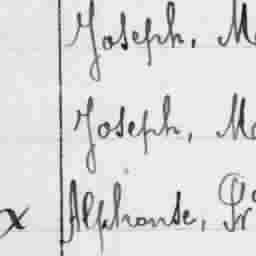 Joseph, M
Joseph, M
x Alphonse, Pr